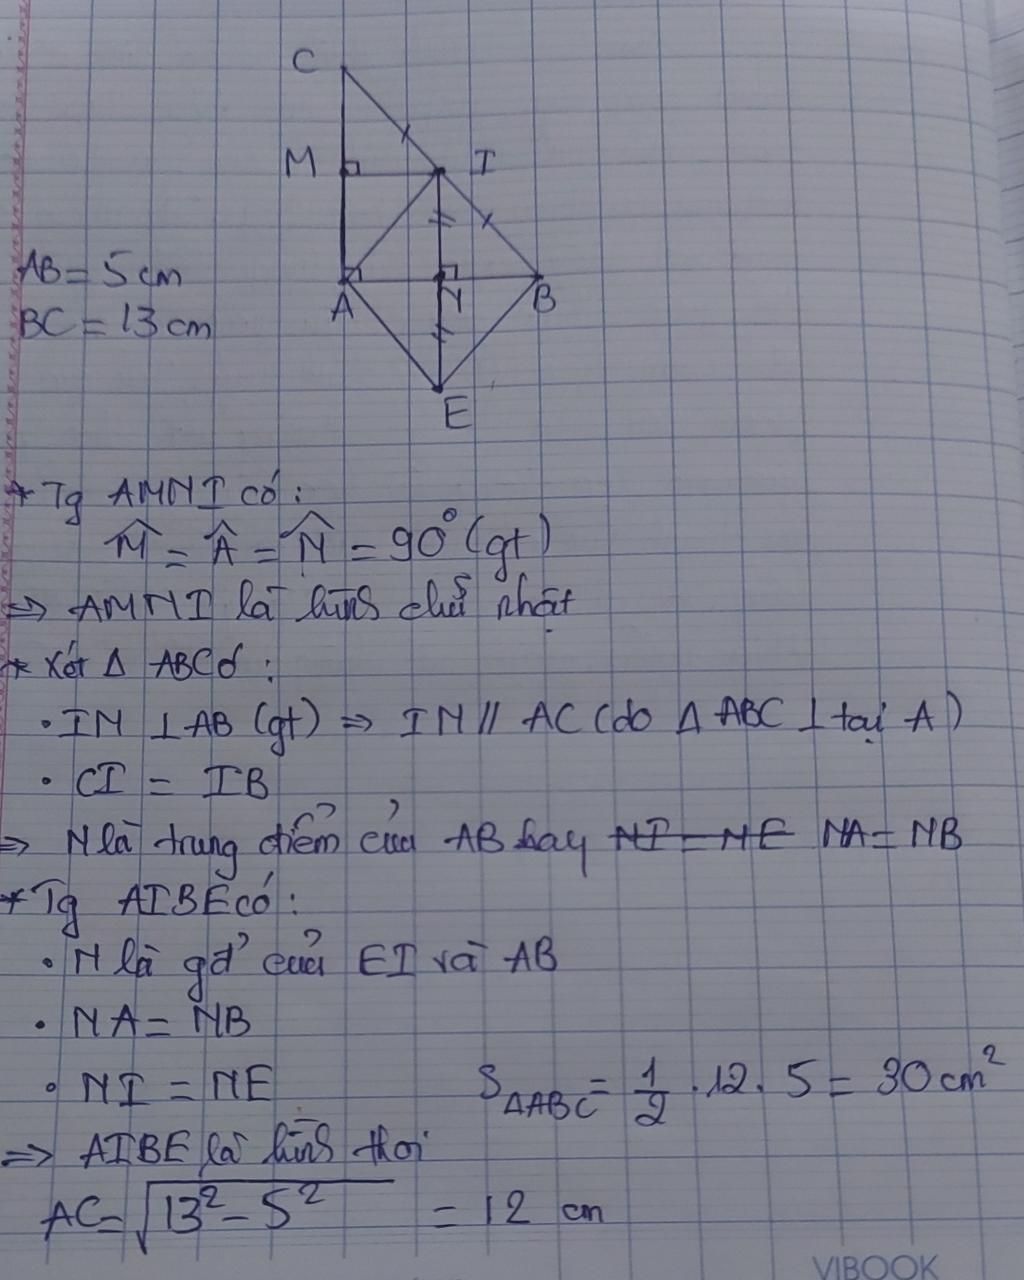 C
M
I
AB = 5 cm
BC = 13 cm
A
N
B
E
* Tg AMNI có:
M̂ = Â = N̂ = 90° (gt)
=> AMNI là hình chữ nhật
* Xét Δ ABC có:
· IN ⊥ AB (gt) => IN // AC (do Δ ABC ⊥ tại A)
· CI = IB
=> N là trung điểm của AB hay NI = NE NA = NB
* Tg AIBE có:
· N là gđ' của EI và AB
· NA = NB
· NI = NE
S ΔABC = 1/2 . 12 . 5 = 30 cm²
=> AIBE là hình thoi
AC = √13² - 5² = 12 cm
VIBOOK